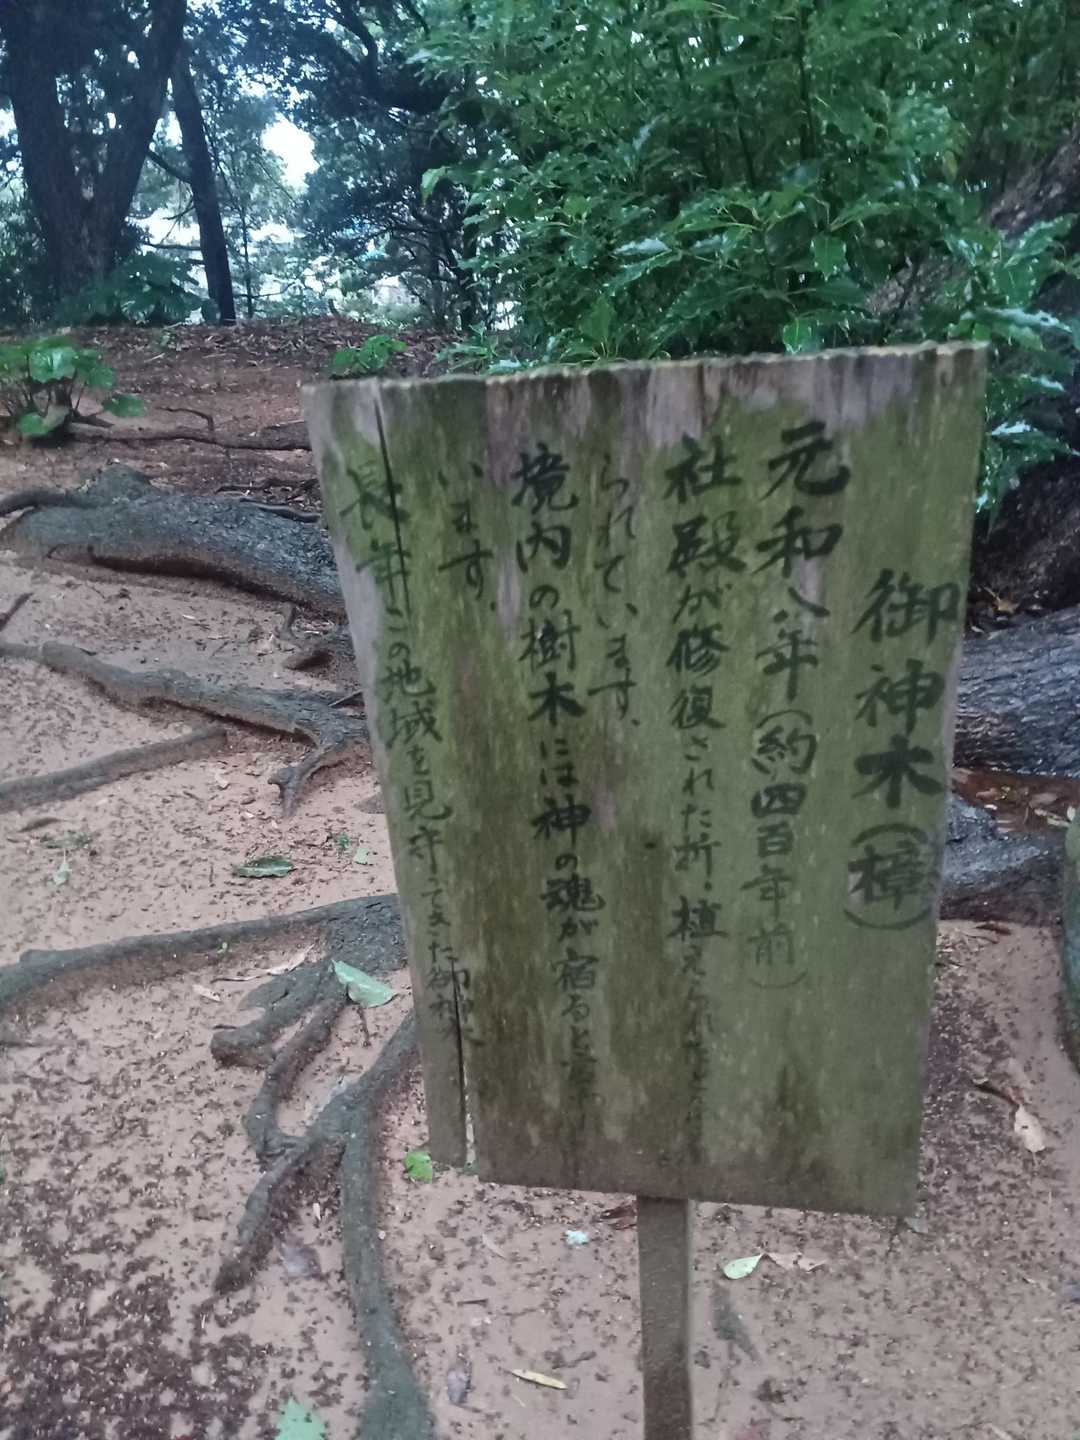 御神木(樟)
元和八年(約四百年前)
社殿が修復された折、植えられたと
られています、
境内の樹木には神の魂が宿ると
います、
長年この地域を見守ってきた御神木